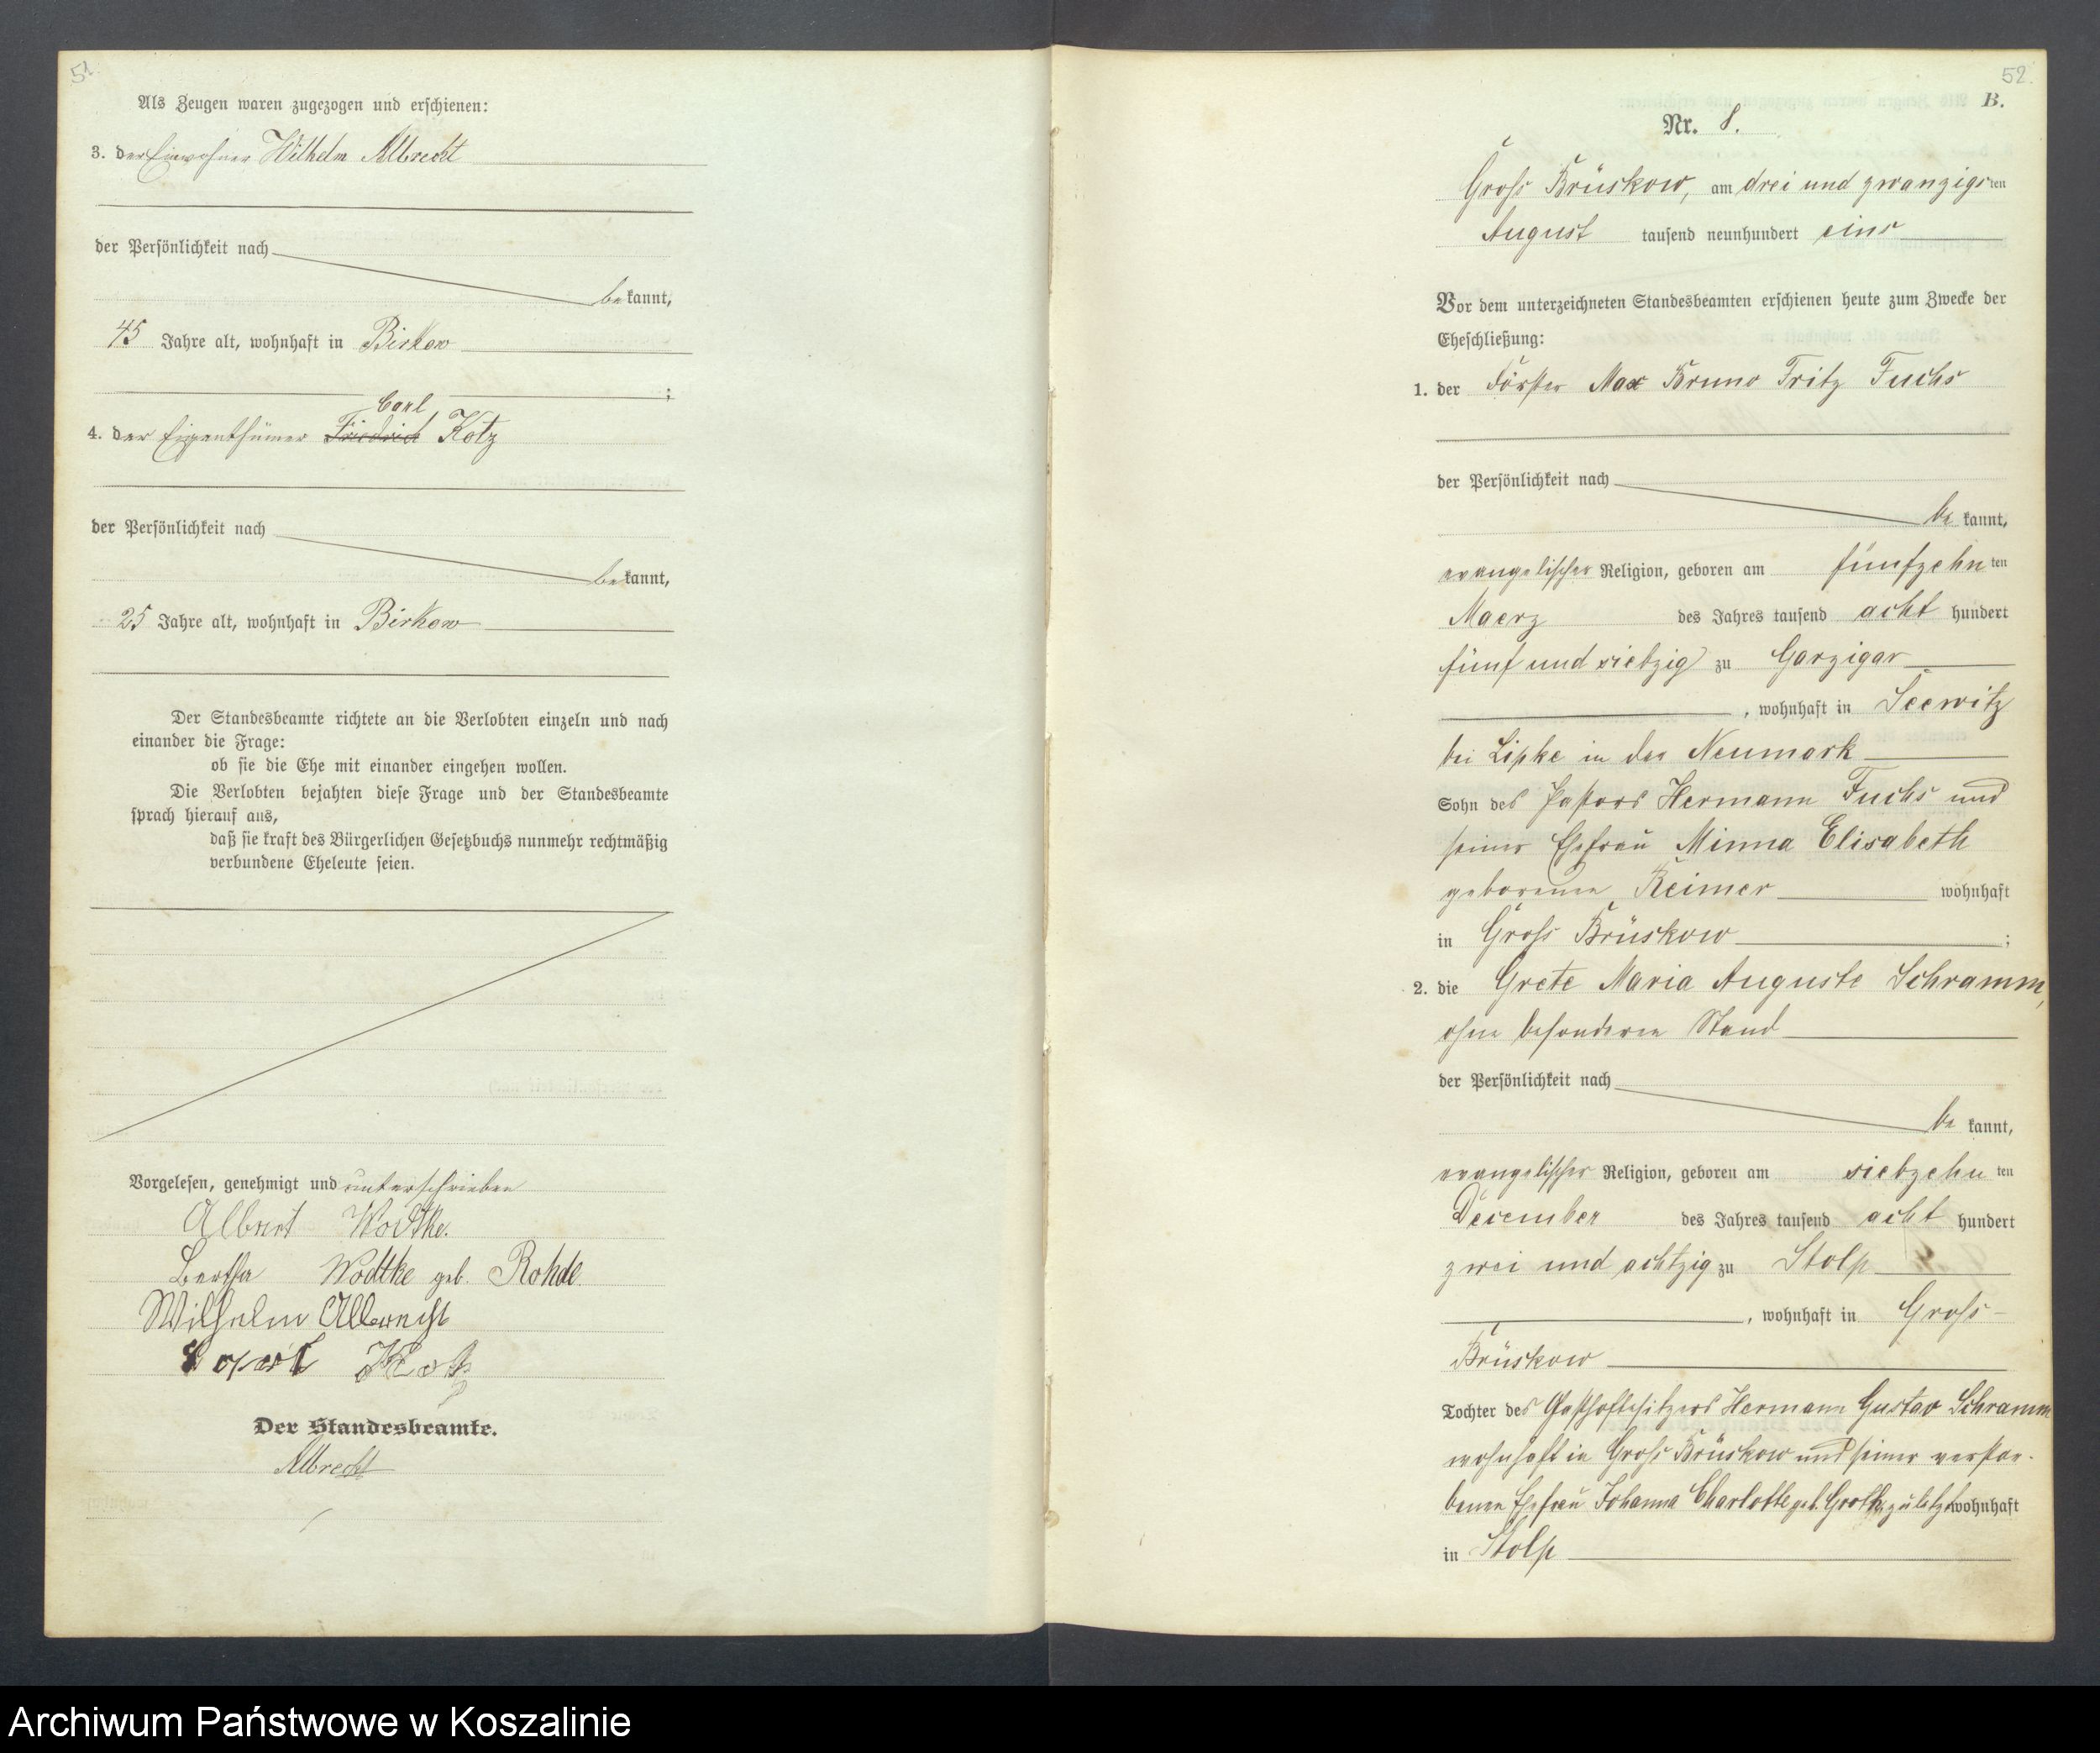 51.
Als Zeugen waren zugezogen und erschienen:
3. der Einwohner Wilhelm Albrecht
der Persönlichkeit nach
bekannt,
45 Jahre alt, wohnhaft in Birkow
;
Carl
4. der Eigenthümer Friedrich Kotz
der Persönlichkeit nach
bekannt,
25 Jahre alt, wohnhaft in Birkow
Der Standesbeamte richtete an die Verlobten einzeln und nach
einander die Frage:
ob sie die Ehe mit einander eingehen wollen.
Die Verlobten bejahten diese Frage und der Standesbeamte
sprach hierauf aus,
daß sie kraft des Bürgerlichen Gesetzbuchs nunmehr rechtmäßig
verbundene Eheleute seien.
Vorgelesen, genehmigt und unterschrieben
Albert Wodtke.
Bertha Wodtke geb. Rohde.
Wilhelm Albrecht
Kotz
Der Standesbeamte.
Albrecht
52.
B.
Nr. 8.
Groß Brüskow, am drei und zwanzigsten
August tausend neunhundert eins
Vor dem unterzeichneten Standesbeamten erschienen heute zum Zwecke der
Eheschließung:
1. der Förster Max Bruno Fritz Fuchs
der Persönlichkeit nach
be kannt,
evangelischer Religion, geboren am fünfzehn ten
Maerz des Jahres tausend acht hundert
fünf und siebzig zu Garzigar
, wohnhaft in Seewitz
bei Lipke in der Neumark
Sohn des Pastors Hermann Fuchs und
seiner Ehefrau Minna Elisabeth
geborenen Reimer wohnhaft
in Groß Brüskow ;
2. die Grete Maria Auguste Schramm,
ohne besonderen Stand
der Persönlichkeit nach
be kannt,
evangelischer Religion, geboren am siebzehn ten
December des Jahres tausend acht hundert
zwei und achtzig zu Stolp
, wohnhaft in Groß-
Brüskow
Tochter des Gasthofbesitzers Hermann Gustav Schramm
wohnhaft in Groß Brüskow und seiner verstor-
benen Ehefrau Johanna Charlotte geb. Groth, zuletzt wohnhaft
in Stolp
Archiwum Państwowe w Koszalinie